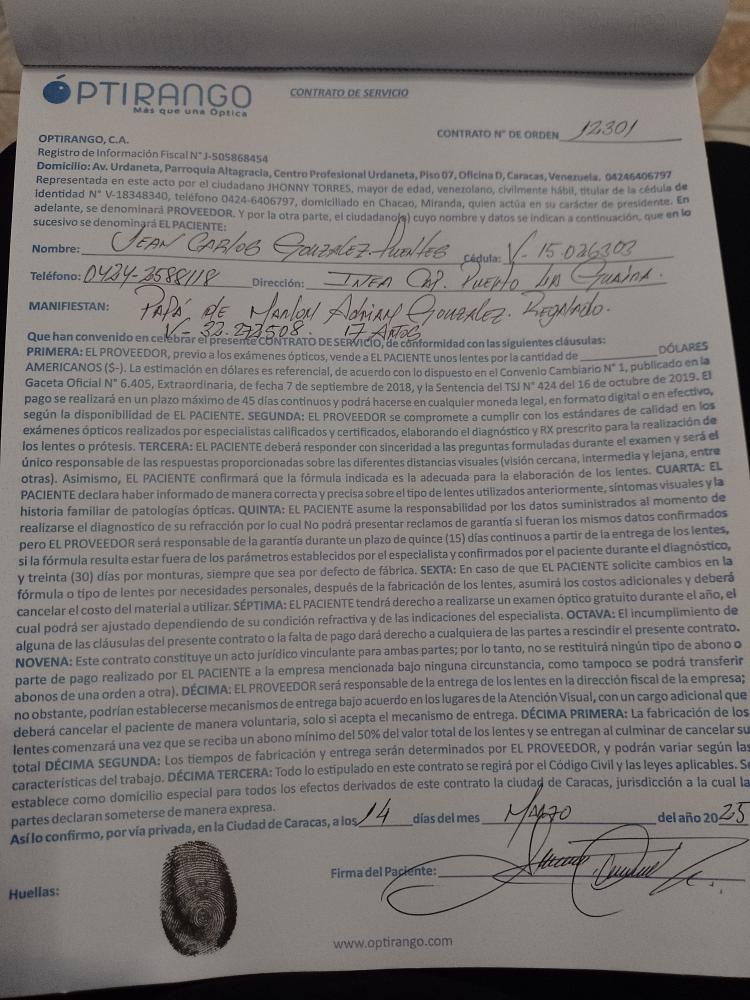 ÓPTIRANGO
Más que una Óptica
CONTRATO DE SERVICIO
CONTRATO N° DE ORDEN 12301
OPTIRANGO, C.A.
Registro de Información Fiscal N° J-505868454
Domicilio: Av. Urdaneta, Parroquia Altagracia, Centro Profesional Urdaneta, Piso 07, Oficina D, Caracas, Venezuela. 04246406797
Representada en este acto por el ciudadano JHONNY TORRES, mayor de edad, venezolano, civilmente hábil, titular de la cédula de
identidad N° V-18348340, teléfono 0424-6406797, domiciliado en Chacao, Miranda, quien actúa en su carácter de presidente. En
adelante, se denominará PROVEEDOR. Y por la otra parte, el ciudadano(a) cuyo nombre y datos se indican a continuación, que en lo
sucesivo se denominará EL PACIENTE:
Nombre: JEAN CARLOS GONZALEZ FUENTES Cédula: V- 15.026303
Teléfono: 0424-2588118 Dirección: INEA CAP. PUERTO LA GUAIRA.
MANIFIESTAN: PAPÁ DE Marlon Adrian GONZALEZ. Regalado.
V- 32.272508. 17 AÑOS
Que han convenido en celebrar el presente CONTRATO DE SERVICIO, de conformidad con las siguientes cláusulas:
PRIMERA: EL PROVEEDOR, previo a los exámenes ópticos, vende a EL PACIENTE unos lentes por la cantidad de ____________ DÓLARES
AMERICANOS ($-). La estimación en dólares es referencial, de acuerdo con lo dispuesto en el Convenio Cambiario N° 1, publicado en la
Gaceta Oficial N° 6.405, Extraordinaria, de fecha 7 de septiembre de 2018, y la Sentencia del TSJ N° 424 del 16 de octubre de 2019. El
pago se realizará en un plazo máximo de 45 días continuos y podrá hacerse en cualquier moneda legal, en formato digital o en efectivo,
según la disponibilidad de EL PACIENTE. SEGUNDA: EL PROVEEDOR se compromete a cumplir con los estándares de calidad en los
exámenes ópticos realizados por especialistas calificados y certificados, elaborando el diagnóstico y RX prescrito para la realización de
los lentes o prótesis. TERCERA: EL PACIENTE deberá responder con sinceridad a las preguntas formuladas durante el examen y será el
único responsable de las respuestas proporcionadas sobre las diferentes distancias visuales (visión cercana, intermedia y lejana, entre
otras). Asimismo, EL PACIENTE confirmará que la fórmula indicada es la adecuada para la elaboración de los lentes. CUARTA: EL
PACIENTE declara haber informado de manera correcta y precisa sobre el tipo de lentes utilizados anteriormente, síntomas visuales y la
historia familiar de patologías ópticas. QUINTA: EL PACIENTE asume la responsabilidad por los datos suministrados al momento de
realizarse el diagnostico de su refracción por lo cual No podrá presentar reclamos de garantía si fueran los mismos datos confirmados
pero EL PROVEEDOR será responsable de la garantía durante un plazo de quince (15) días continuos a partir de la entrega de los lentes,
si la fórmula resulta estar fuera de los parámetros establecidos por el especialista y confirmados por el paciente durante el diagnóstico,
y treinta (30) días por monturas, siempre que sea por defecto de fábrica. SEXTA: En caso de que EL PACIENTE solicite cambios en la
fórmula o tipo de lentes por necesidades personales, después de la fabricación de los lentes, asumirá los costos adicionales y deberá
cancelar el costo del material a utilizar. SÉPTIMA: EL PACIENTE tendrá derecho a realizarse un examen óptico gratuito durante el año, el
cual podrá ser ajustado dependiendo de su condición refractiva y de las indicaciones del especialista. OCTAVA: El incumplimiento de
alguna de las cláusulas del presente contrato o la falta de pago dará derecho a cualquiera de las partes a rescindir el presente contrato.
NOVENA: Este contrato constituye un acto jurídico vinculante para ambas partes; por lo tanto, no se restituirá ningún tipo de abono o
parte de pago realizado por EL PACIENTE a la empresa mencionada bajo ninguna circunstancia, como tampoco se podrá transferir
abonos de una orden a otra). DÉCIMA: EL PROVEEDOR será responsable de la entrega de los lentes en la dirección fiscal de la empresa;
no obstante, podrían establecerse mecanismos de entrega bajo acuerdo en los lugares de la Atención Visual, con un cargo adicional que
deberá cancelar el paciente de manera voluntaria, solo si acepta el mecanismo de entrega. DÉCIMA PRIMERA: La fabricación de los
lentes comenzará una vez que se reciba un abono mínimo del 50% del valor total de los lentes y se entregan al culminar de cancelar su
total DÉCIMA SEGUNDA: Los tiempos de fabricación y entrega serán determinados por EL PROVEEDOR, y podrán variar según las
características del trabajo. DÉCIMA TERCERA: Todo lo estipulado en este contrato se regirá por el Código Civil y las leyes aplicables. Se
establece como domicilio especial para todos los efectos derivados de este contrato la ciudad de Caracas, jurisdicción a la cual la
partes declaran someterse de manera expresa.
Así lo confirmo, por vía privada, en la Ciudad de Caracas, a los 14 días del mes MARZO del año 2025
Firma del Paciente:
Huellas:
www.optirango.com